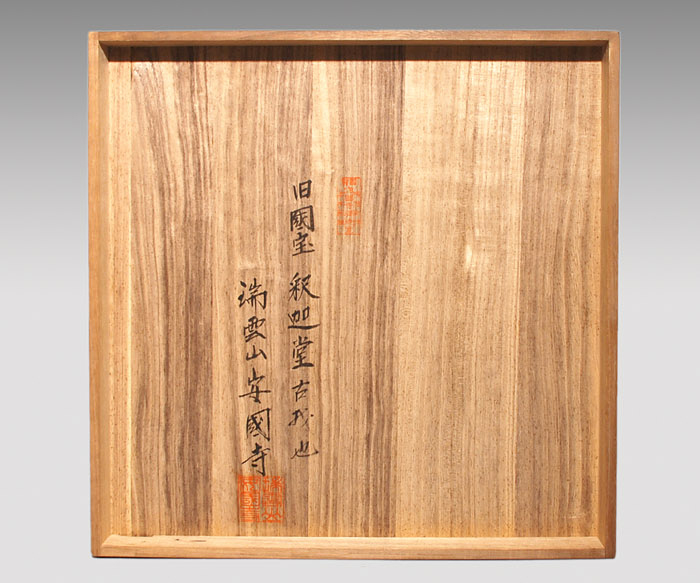 旧國宝 釈迦堂古材也
瑞雲山安國寺